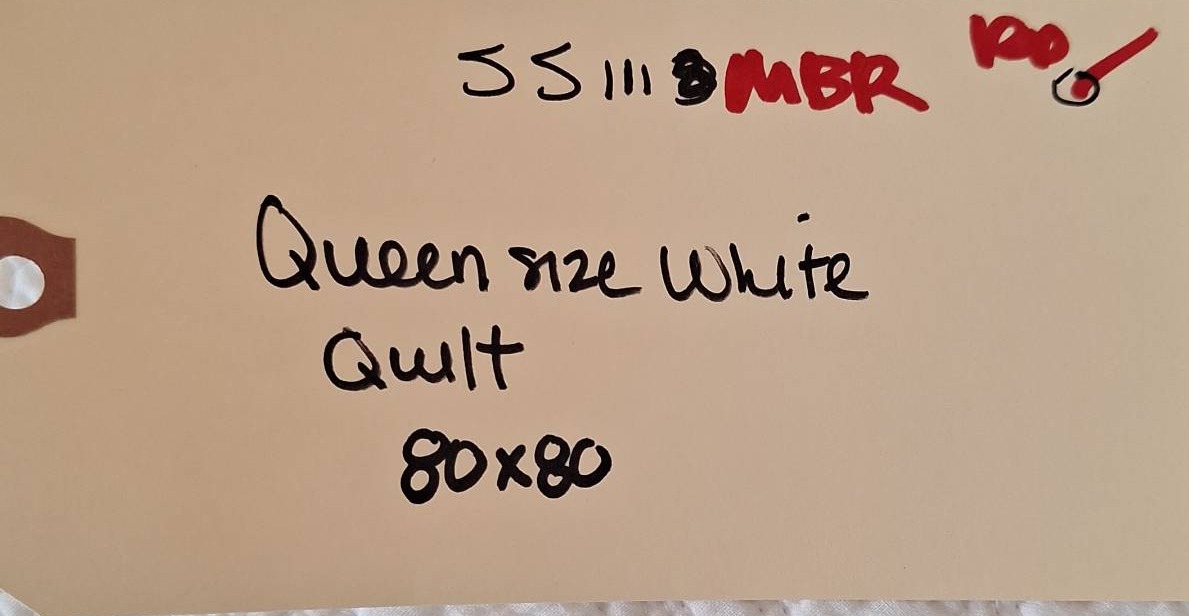 SS111 MBR
Queen size White
Quilt
80x80